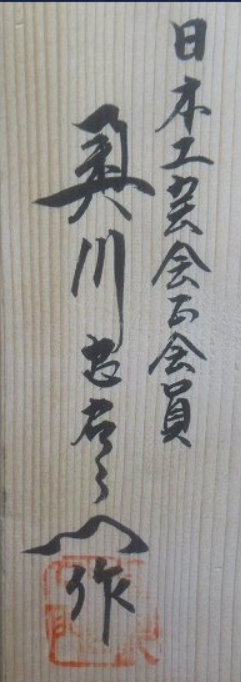 日本工芸会正会員
奥川忠右エ門作